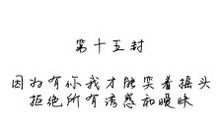 第十五封
因为有你我才能笑着摇头
拒绝所有诱惑和暧昧